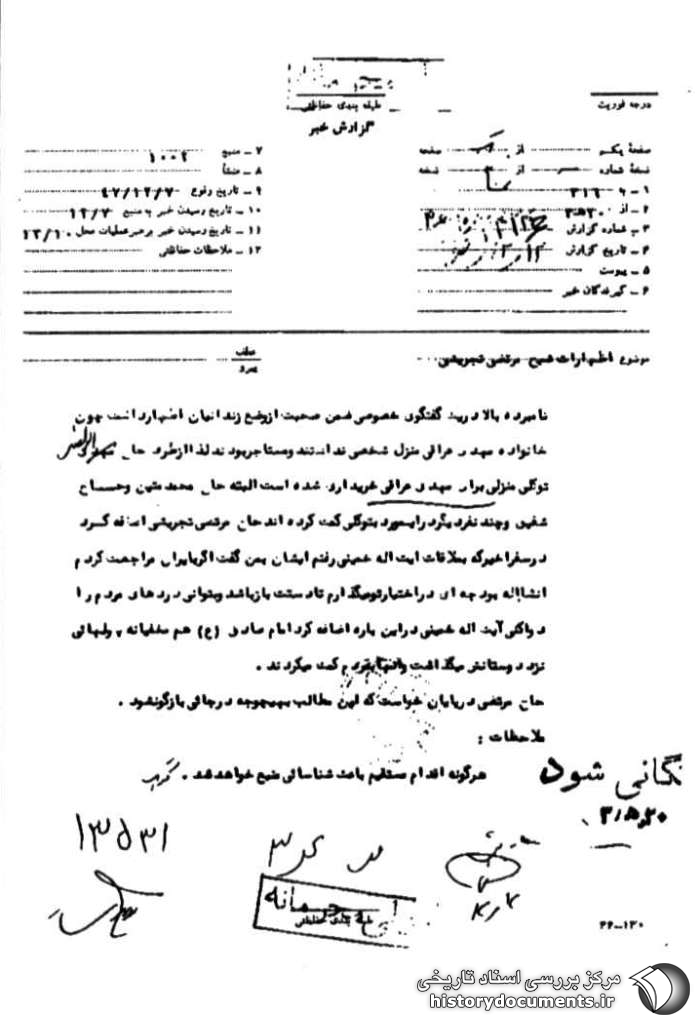 طبقه بندی حفاظتی
درجه فوریت
گزارش خبر
صفحهٔ یکم از یک صفحه
نسخهٔ شماره از نسخه
۱ـ به ۳۱۶
۲ـ از ۳۰۵۲۰
۳ـ شماره گزارش
۴ـ تاریخ گزارش
۵ـ پیوست
۶ـ گیرندگان خبر
۷ـ منبع ۱۰۰۲
۸ـ منشأ
۹ـ تاریخ وقوع ۴۷/۱۲/۷
۱۰ـ تاریخ رسیدن خبر به منبع ۱۲/۷
۱۱ـ تاریخ رسیدن خبر برهبر عملیات محل ۱۲/۱۰
۱۲ـ ملاحظات حفاظتی
موضوع اظهارات شیخ مرتضی تجریشی
نامبرده بالا در یک گفتگوی خصوصی ضمن صحبت از وضع زندانیان اظهار داشت چون
خانواده مهدی عراقی منزل شخصی نداشتند و مستاجر بودند لذا از طرف حاج
توکلی منزلی برای مهدی عراقی خریداری شده است البته حاج محمد متین و حساج
شفیق و چند نفر دیگر در اینمورد بتوکلی کمک کرده اند حاج مرتضی تجریشی اضافه کرد
در سفر اخیر که بملاقات ایت اله خمینی رفتم ایشان بمن گفت اگر بایران مراجعت کردم
انشااله بودجه ای در اختیار تو میگذارم تا دستت باز باشد و بتوانی درد های مردم را
دوا کنی آیت اله خمینی در این باره اضافه کرد امام صادق (ع) هم مخفیانه پولهائی
نزد دوستانش میگذاشت و آنها بمردم کمک میکردند .
حاج مرتضی در پایان خواست که این مطالب بهیچوجه در جائی بازگو نشود .
ملاحظات :
هرگونه اقدام مستقیم باعث شناسائی منبع خواهد شد .
بایگانی شود
۳۰۵۲۰
۱۳۵۳۱
طبقه بندی حفاظتی
۲۲-۱۳۰
مرکز بررسی اسناد تاریخی
historydocuments.ir